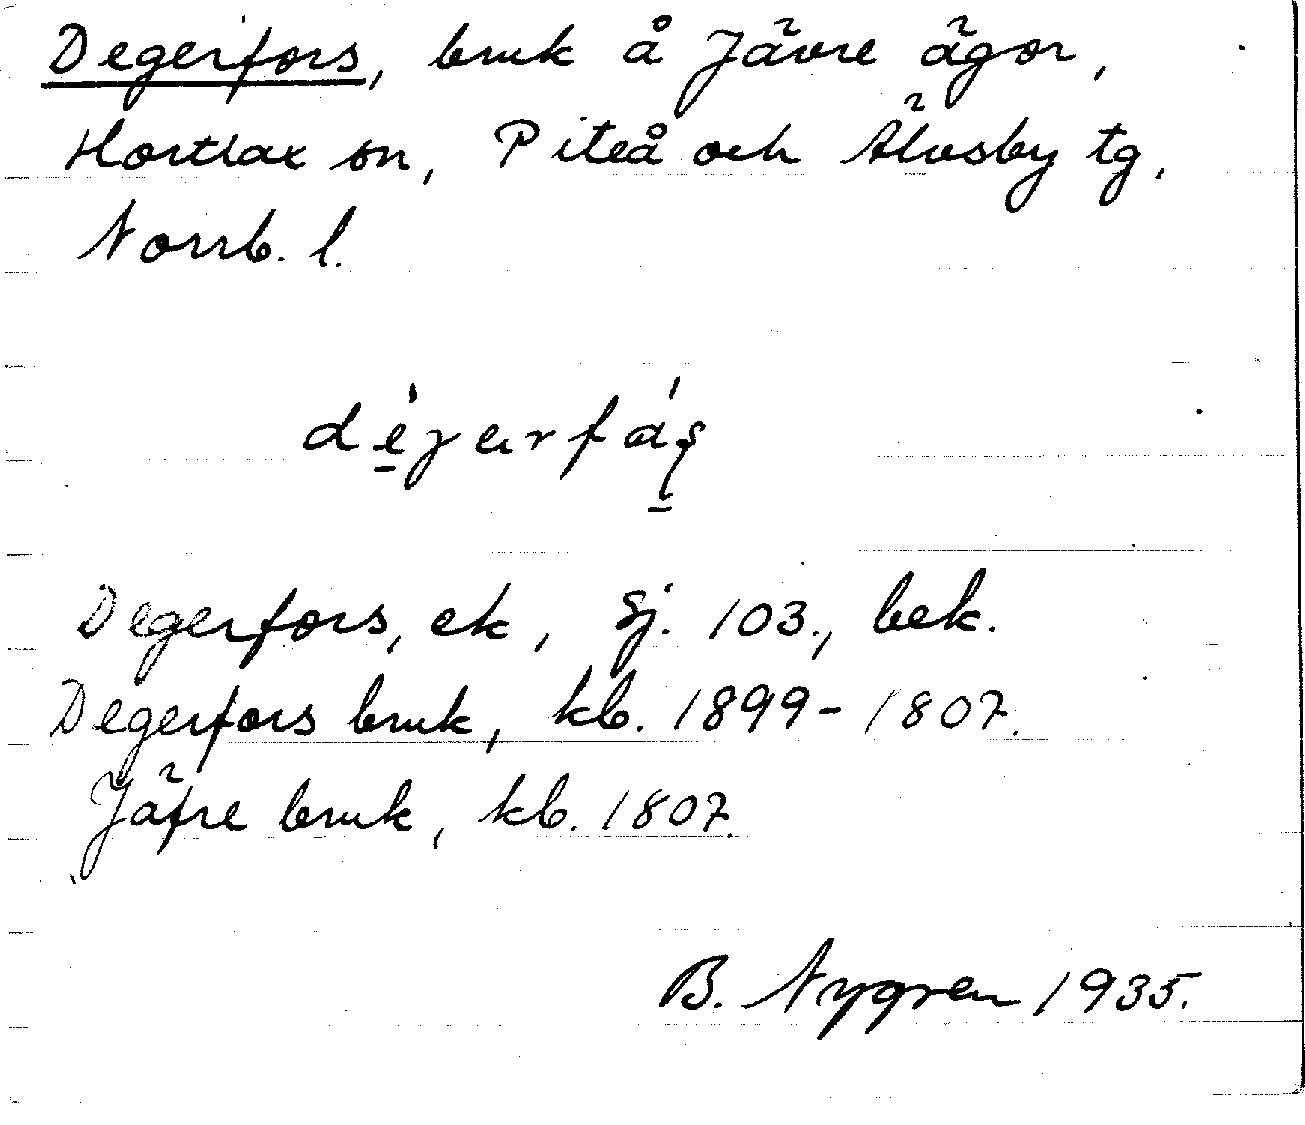 Degerfors, bruk å Jävre ägor,
Hortlax sn, Piteå och Älvsby tg,
Norrb. l.
Degerfors, ek, Sj. 103., bek.
Degerfors bruk, kb. 1899-1807.
Jäfre bruk, kb. 1807.
B. Nygren 1935.